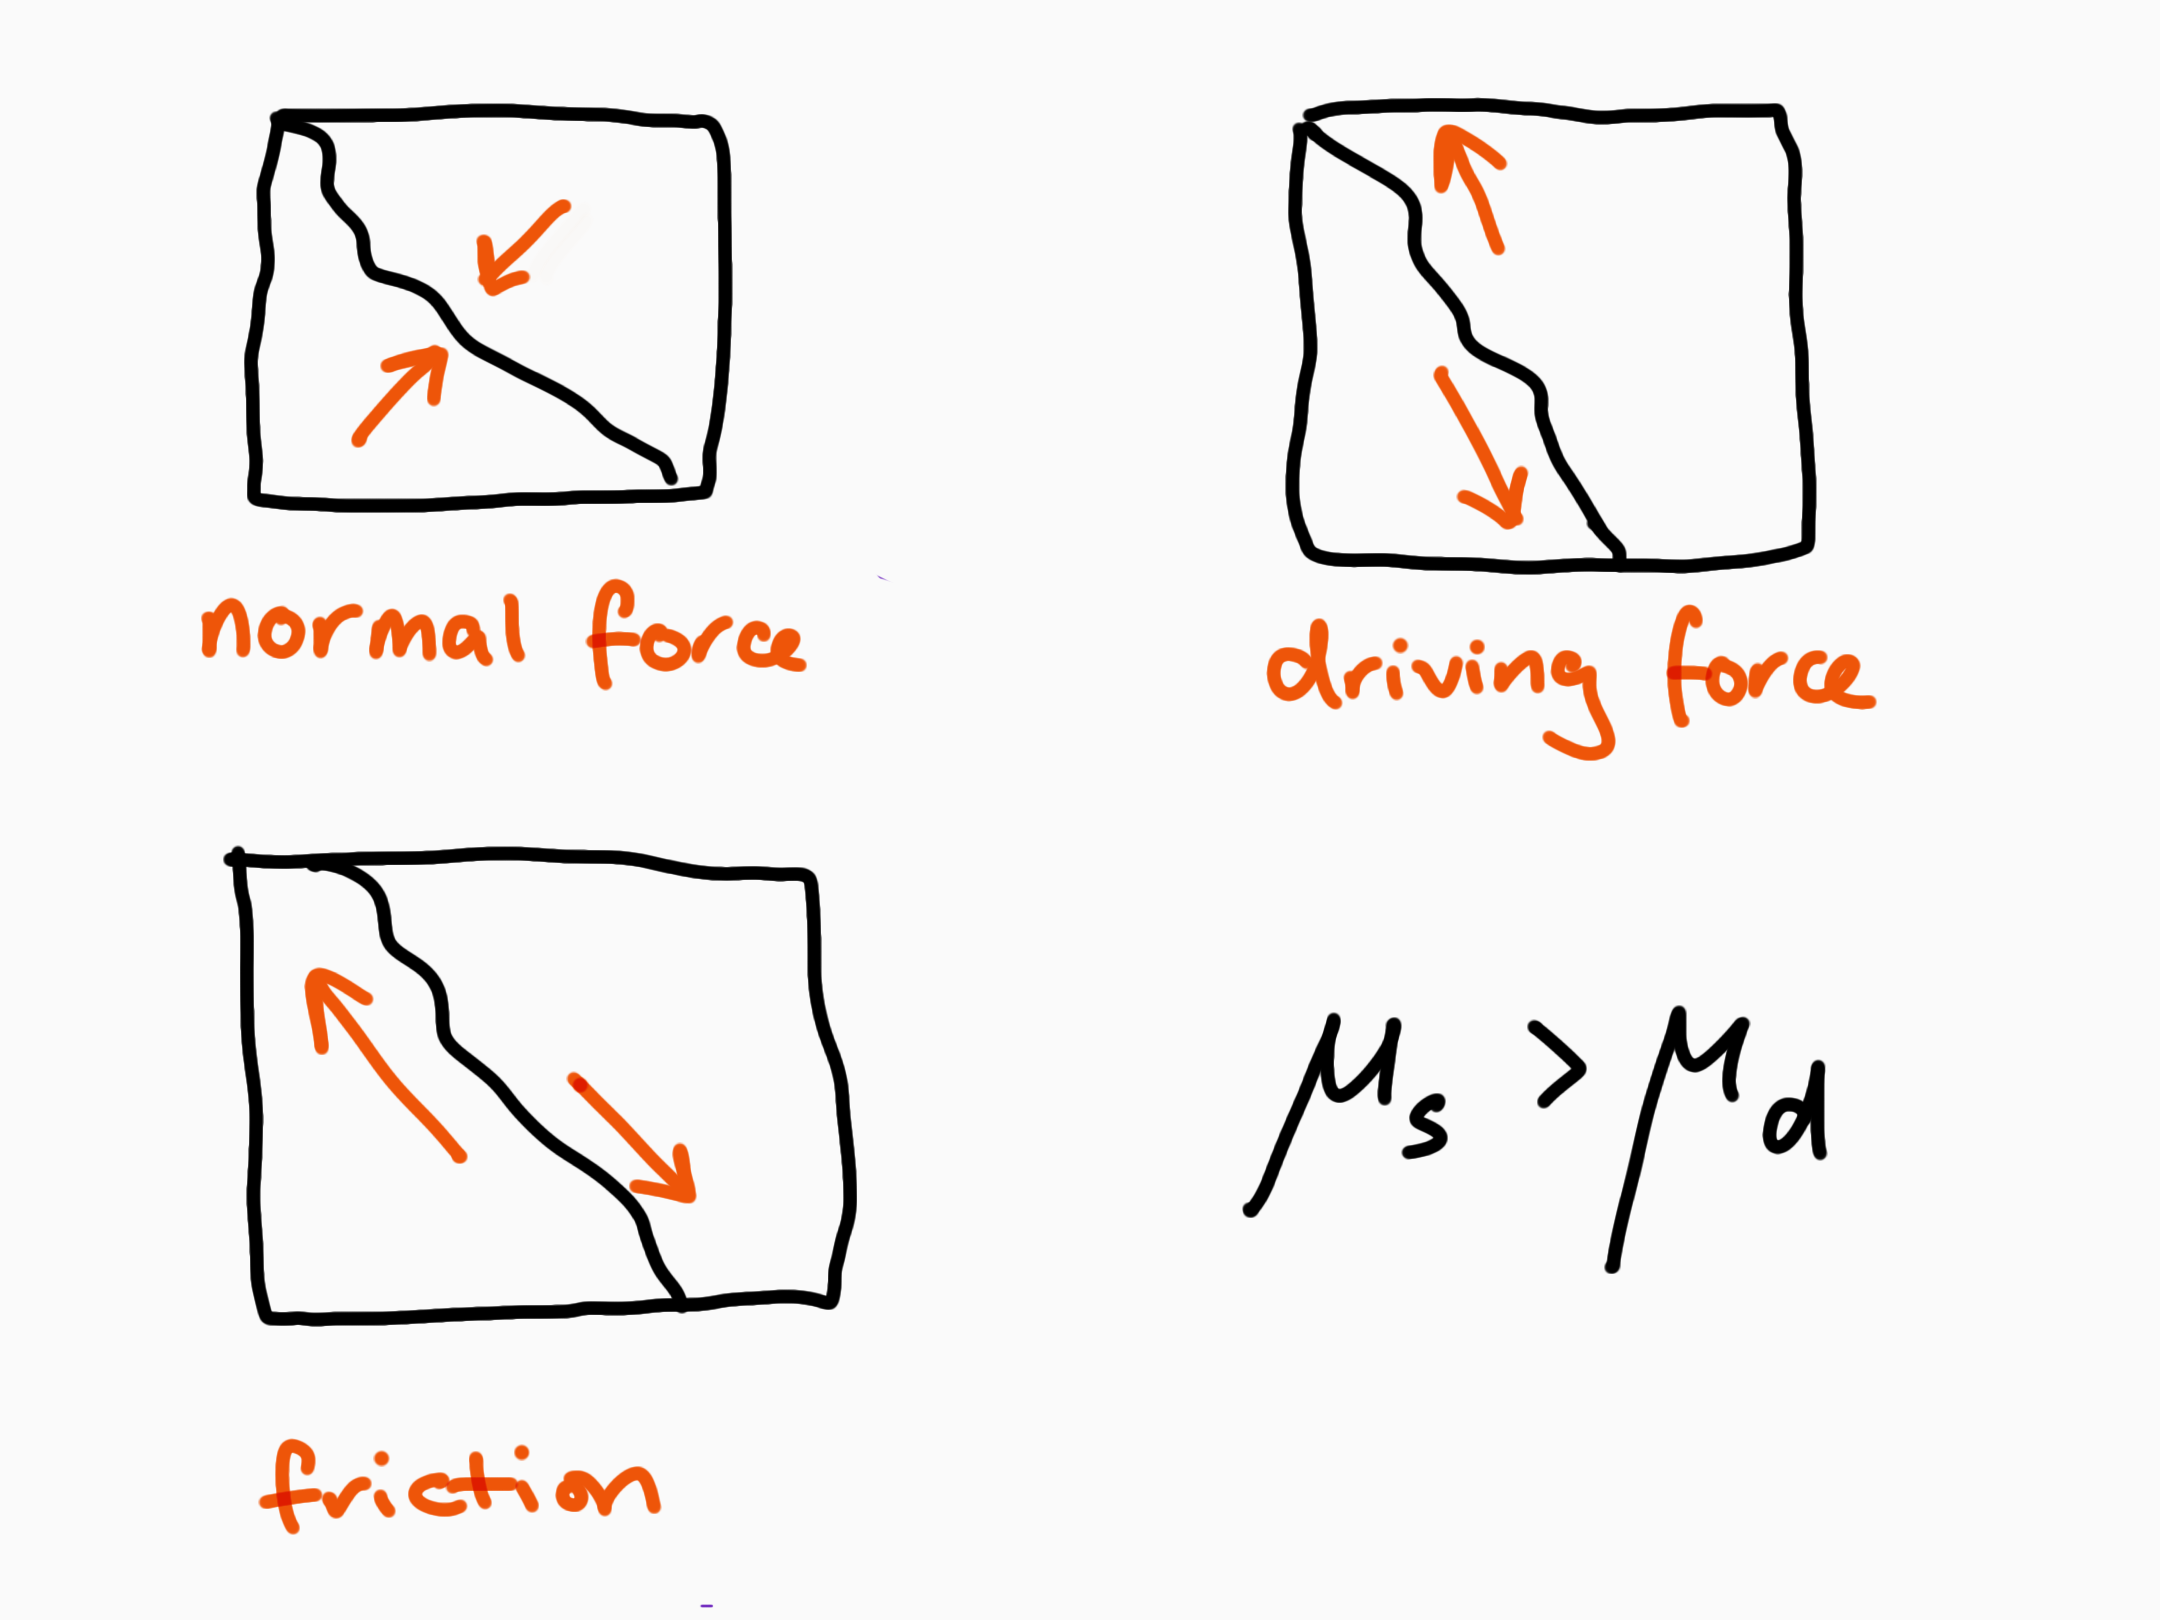 normal force
driving force
friction
μs > μd